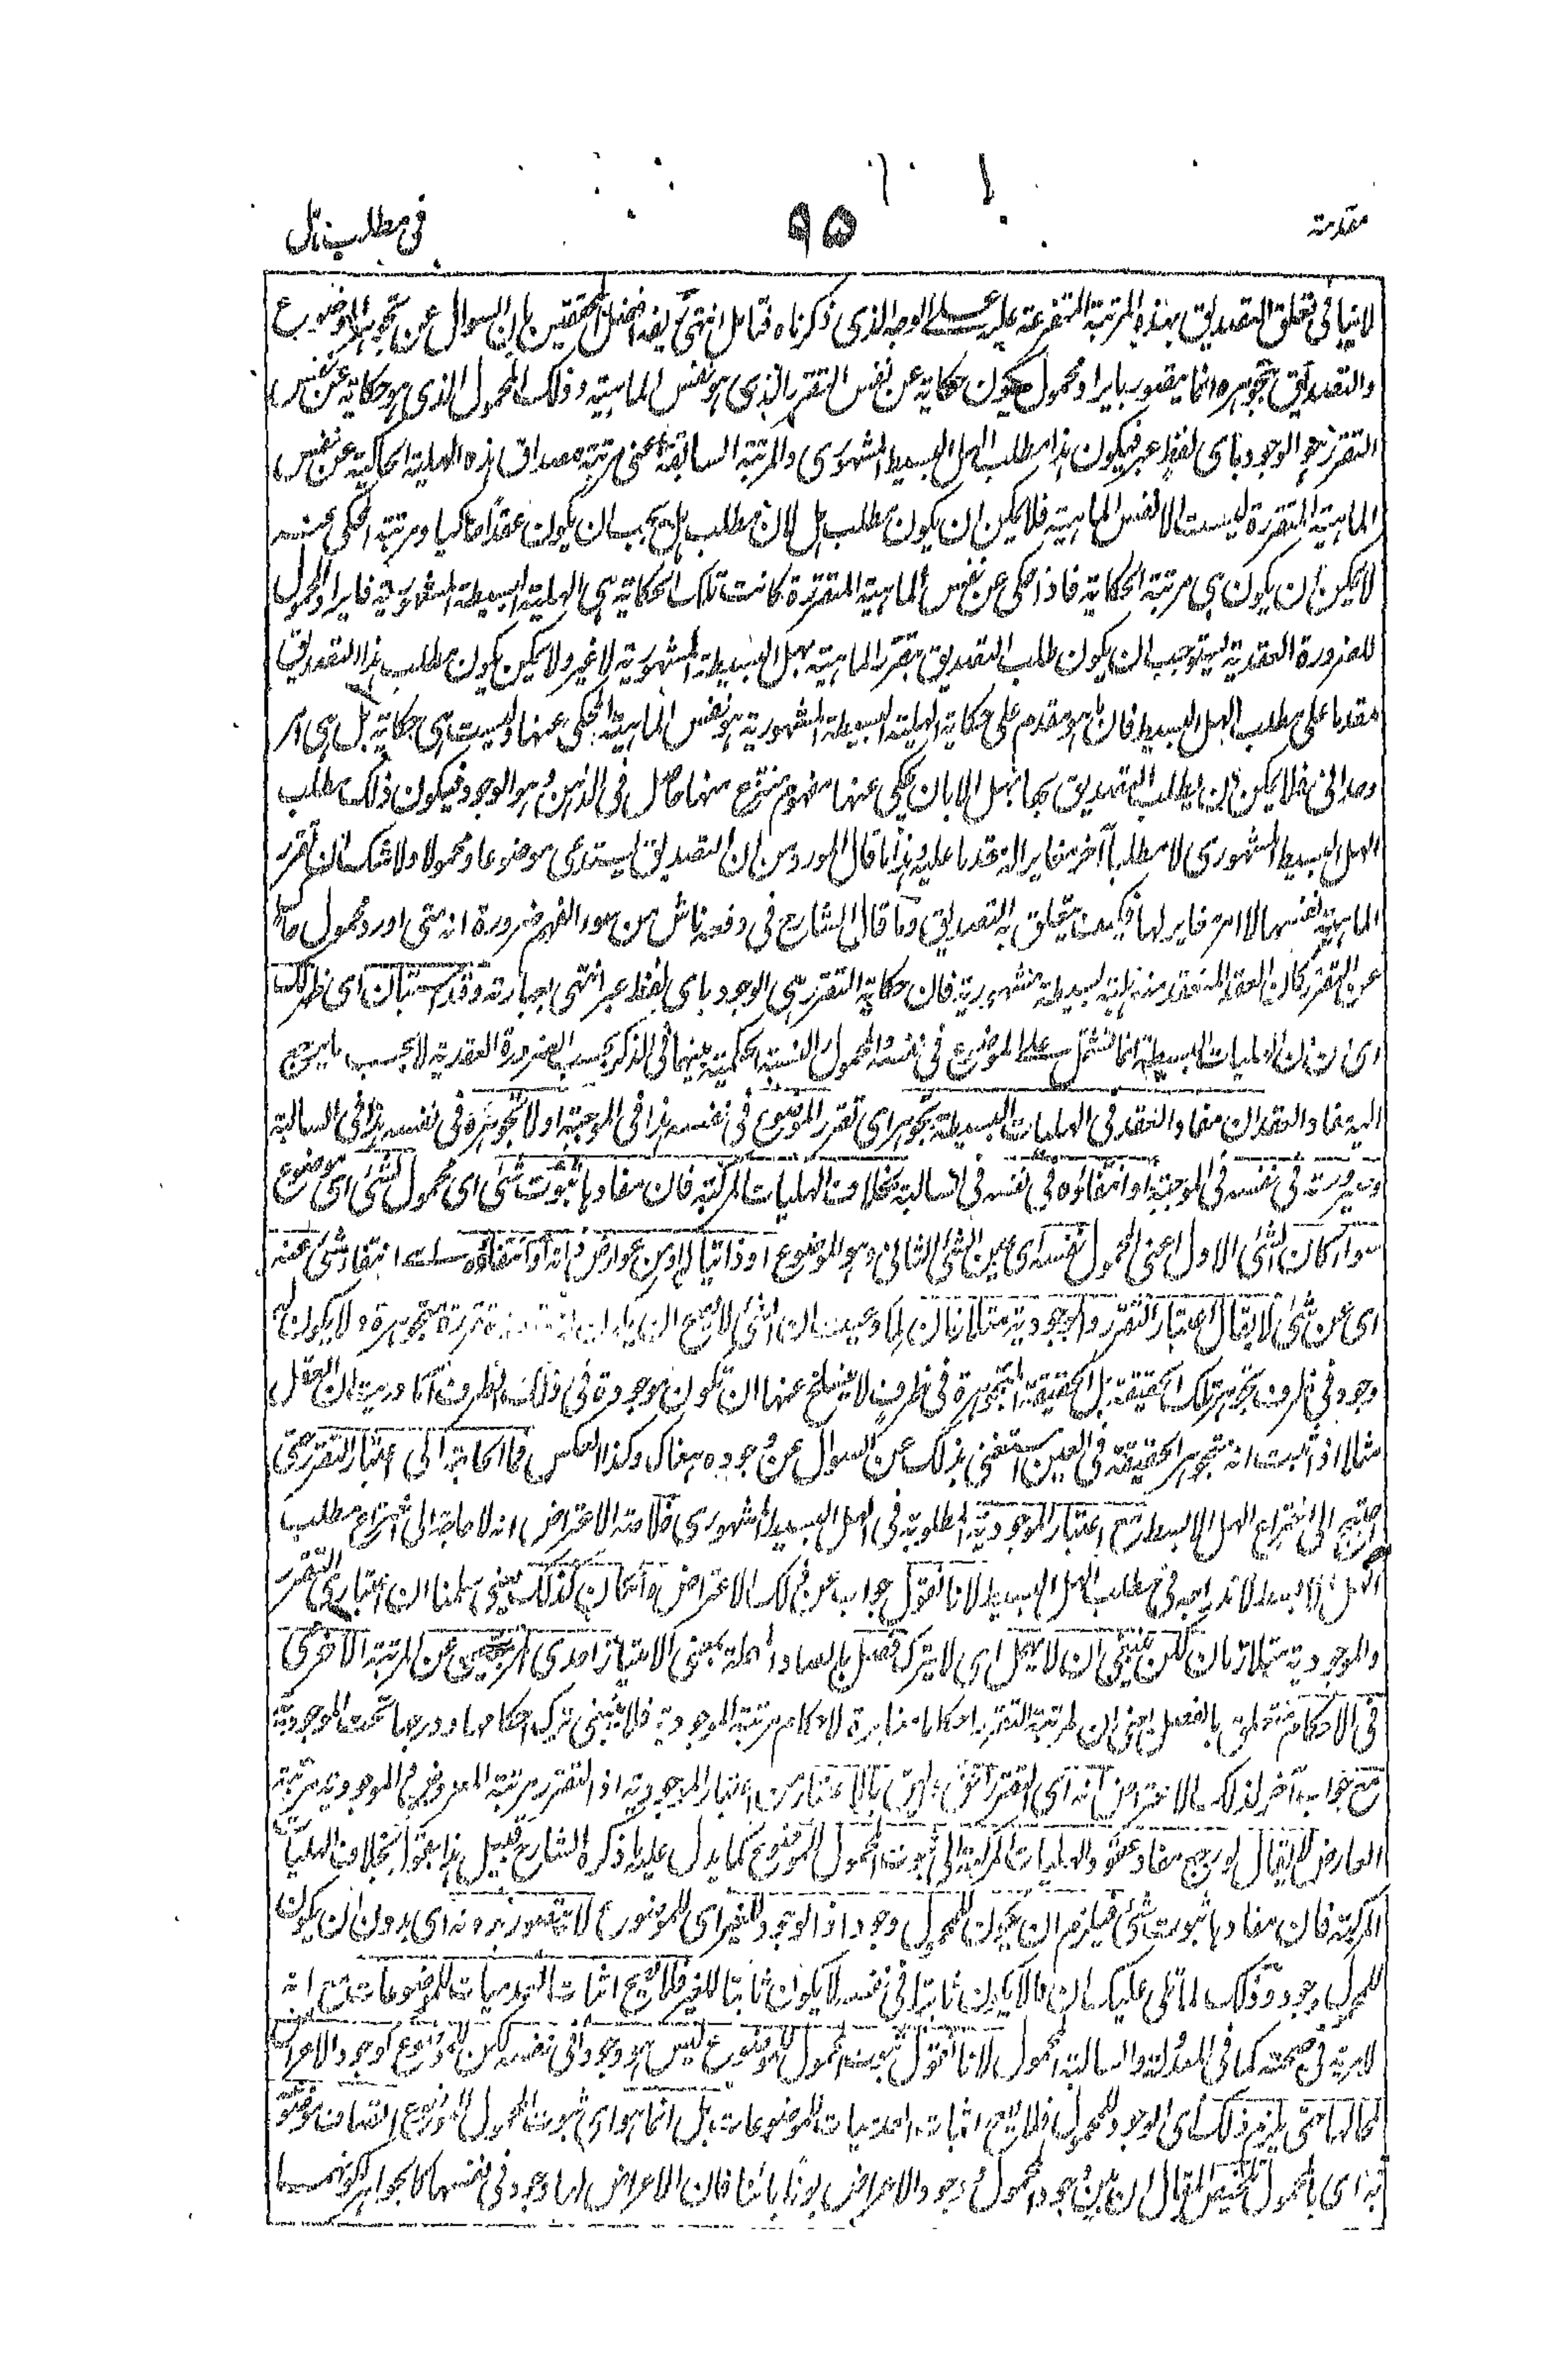 مقدمة
٩٥
في مطلب هل
لا ينافي تعلق التصديق بهذه المرتبة المتفرعة عليه على الوجه الذي ذكرناه فتامل انتهى افضل المحققين بان السوال عن تجوهر الموضوع
والتصديق بتجوهره انما يتصور بايراد محمول يكون حكاية عن نفس التقرر الذي هو نفس الماهية وذلك المحمول الذي هو حكاية عن نفس
التقرر هو الوجود باى لفظ عبر فيكون هذا مطلب الهل البسيط المشهورى والمرتبة السابقة اعنى مرتبة مصداق هذه الهلية الحاكية عن نفس
الماهية المتقررة ليست الا نفس الماهية فلا يمكن ان يكون مطلب هل لان مطلب هل يجب ان يكون عقدا حاكيا ومرتبة المحكى عنه
لا يمكن ان يكون هى مرتبة الحكاية فاذا حكى عن نفس الماهية المتقررة كانت تلك الحكاية هى الهلية البسيطة المشهورية فايراد المحمول
للضرورة العقدية يستوجب ان يكون طلب التصديق بتقرر الماهية بهل البسيطة المشهورية لا غير ولا يمكن يكون مطلب هذا التصديق
مقدما على مطلب الهل البسيط فان ما هو مقدم على حكاية الهلية البسيطة المشهورية هو نفس الماهية المحكى عنها وليست هى حكاية بل هى امر
وحدانى فلا يمكن ان يطلب التصديق بها بهل الا بان يحكى عنها مفهوم منتزع منها حاصل فى الذهن وهو الوجود فيكون ذلك مطلب
الهل البسيط المشهورى لا مطلبا آخر مغايرا له مقدما عليه وهذا ما قال المورد من ان التصديق يستدعى موضوعا ومحمولا ولا شك ان تقرر
الماهية نفسها لا امر مغاير لها فكيف يتعلق به التصديق وما قال الشارح فى دفعه ناش من سوء الفهم ضرورة انه متى اورد محمول حاك
عن التقرر كان العقد المنعقد منه هلية بسيطة مشهورية فان حكاية التقرر هى الوجود باى لفظ عبر انتهى بعبارته وقد استبان اى ظهر لك
ان الهليات البسيطة انما تشتمل على الموضوع فى نفسه والمحمول والنسبة الحكمية بينهما فى الذكر بحسب الضرورة العقدية لا بحسب ما يرجع
اليه مفاد العقد لان مفاد العقد فى الهليات البسيطة تجوهر اى تقرر الموضوع فى نفسه هذا فى الموجبة او لا تجوهره فى نفسه هذا فى السالبة
فى نفسه فى الموجبة او انتفائه فى نفسه فى السالبة بخلاف الهليات المركبة فان مفادها ثبوت شئ اى محمول لشئ اى موضوع
سواء كان الشئ الاول اعنى المحمول نفسه اى عين الشئ الثانى وهو الموضوع او ذاتيا له او من عوارض ذاته او انتفاؤه انتفاء شئ عنه
اى عن شئ لا يقال اعتبار التقرر والموجودية متلازمان لما دعيت ان الشئ لا يصح ان متقررة متجوهرة ولا يكون له
وجود فى ظرف تجوهر تلك الحقيقة بل الحقيقة المتجوهرة فى ظرف لا ينسلخ عنها ان تكون موجودة فى ذلك الظرف اما دريت ان العقل
مثلا اذا ثبت انه متجوهر الحقيقة فى العين استغنى بذلك عن السوال عن وجوده هناك وكذا العكس فما الحاجة الى اعتبار التقرر حتى
احتيج الى اختراع الهل الابسط مع اعتبار الموجودية المطلوبة فى الهل البسيط المشهورى خلاصة الاعتراض انه لا حاجة الى اختراع مطلب
الهل الابسط لاندراجه فى مطلب الهل البسيط لانا نقول جواب عن ذلك الاعتراض وان كان كذلك يعنى سلمنا ان اعتبارى التقرر
والموجودية متلازمان لكن ينبغى ان لا يهمل اى لا يترك فصل بالصاد المهملة بمعنى الامتياز احدى المرتبتين عن المرتبة الاخرى
فى الاحكام متعلق بالفصل اعنى ان لمرتبة التقرر احكاما مغايرة لاحكام مرتبة الموجودية فلا ينبغى ترك احكامها ودرجها تحت الموجودية
مع جواب آخر لذلك الاعتراض انه اى التقرر بالاعتبار من اعتبار الموجودية اذ التقرر مرتبة المعروض والموجودية مرتبة
العارض لا يقال لو رجع مفاد عقود الهليات المركبة الى ثبوت المحمول للموضوع كما يدل عليه ما ذكره الشارح قبيل هذا بقوله بخلاف الهليات
المركبة فان مفادها ثبوت شئ فيلزم ان يكون للمحمول وجود اذ الوجود للغير اى للموضوع لا يتصور بدونه اى بدون ان يكون
للمحمول وجود وذلك لما تلى عليك ان ما لا يكون ثابتا فى نفسه لا يكون ثابتا للغير فلا يصح اثبات العدميات للموضوعات مع انه
لا ريب فى صحته كما فى المعدولة والسالبة المحمول لانا نقول ثبوت المحمول للموضوع ليس هو وجودا فى نفسه لكن للموضوع كوجود الاعراض
لمحالها حتى يلزم ذلك اى الوجود للمحمول فلا يصح اثبات العدميات للموضوعات بل انما هو اى ثبوت المحمول للموضوع اتصاف موضوع
به اى بالمحمول تلخيص المقال ان بين وجود المحمول ووجود الاعراض بونا بائنا فان الاعراض لها وجود فى نفسها كالجواهر لكونهما